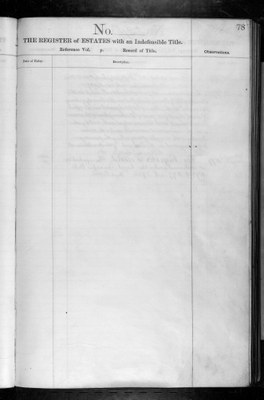 78
No.
THE REGISTER of ESTATES with an Indefeasible Title.
Reference Vol. p. Record of Title. Observations.
Date of Entry. Description.